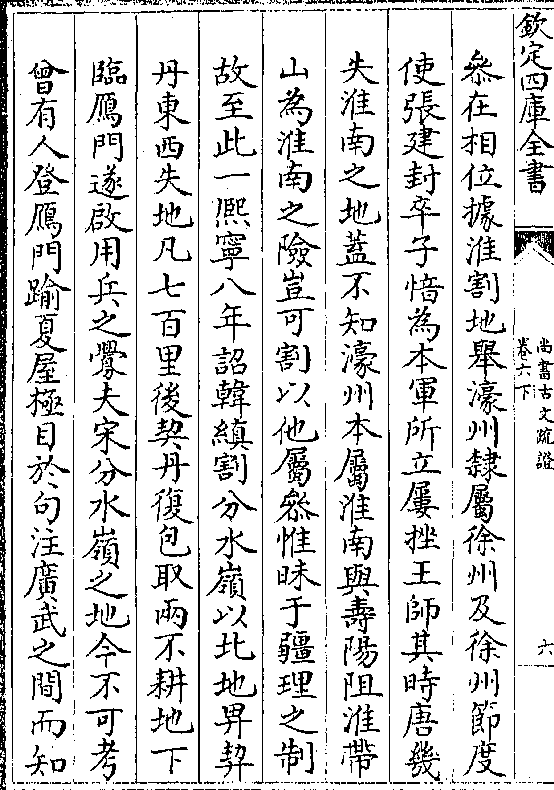 欽定四庫全書
尚書古文疏證
卷六下
六
叅在相位據淮割地舉濠州隸屬徐州及徐州節度
使張建封卒子愔為本軍所立屢挫王師其時唐幾
失淮南之地蓋不知濠州本屬淮南與壽陽阻淮帶
山為淮南之險豈可割以他屬叅惟昧于疆理之制
故至此一熙寧八年詔韓縝割分水嶺以北地畀契
丹東西失地凡七百里後契丹復包取兩不耕地下
臨鴈門遂啟用兵之釁夫宋分水嶺之地今不可考
曾有人登鴈門踰夏屋極目於句注廣武之間而知